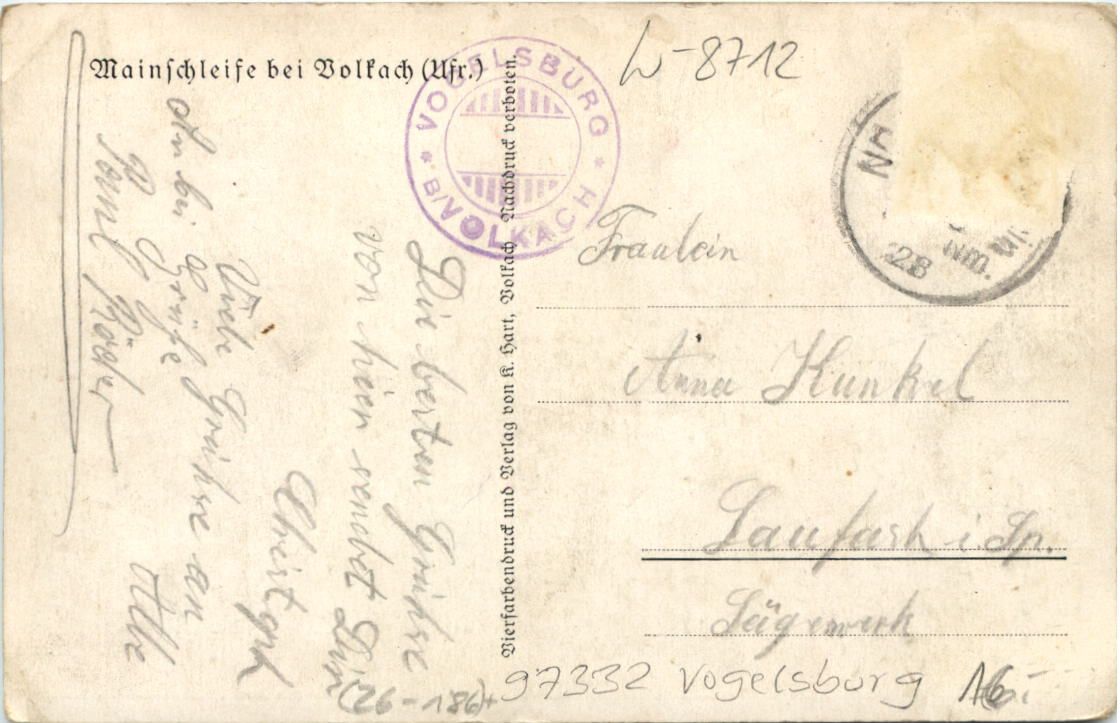 Mainschleife bei Volkach (Ufr.)
VOGELSBURG
* B/VOLKACH *
W-8712
28
Nm.
Vierfarbendruck und Verlag von K. Hart, Volkach Nachdruck verboten.
Die besten Grüsse
von hier sendet Dir
Christoph
Viele Grüsse an
Alle
Grüße
Fräulein
Anna Kunkel
Laufach i. Sp.
Sägewerk
(26-186)+
97332 Vogelsburg